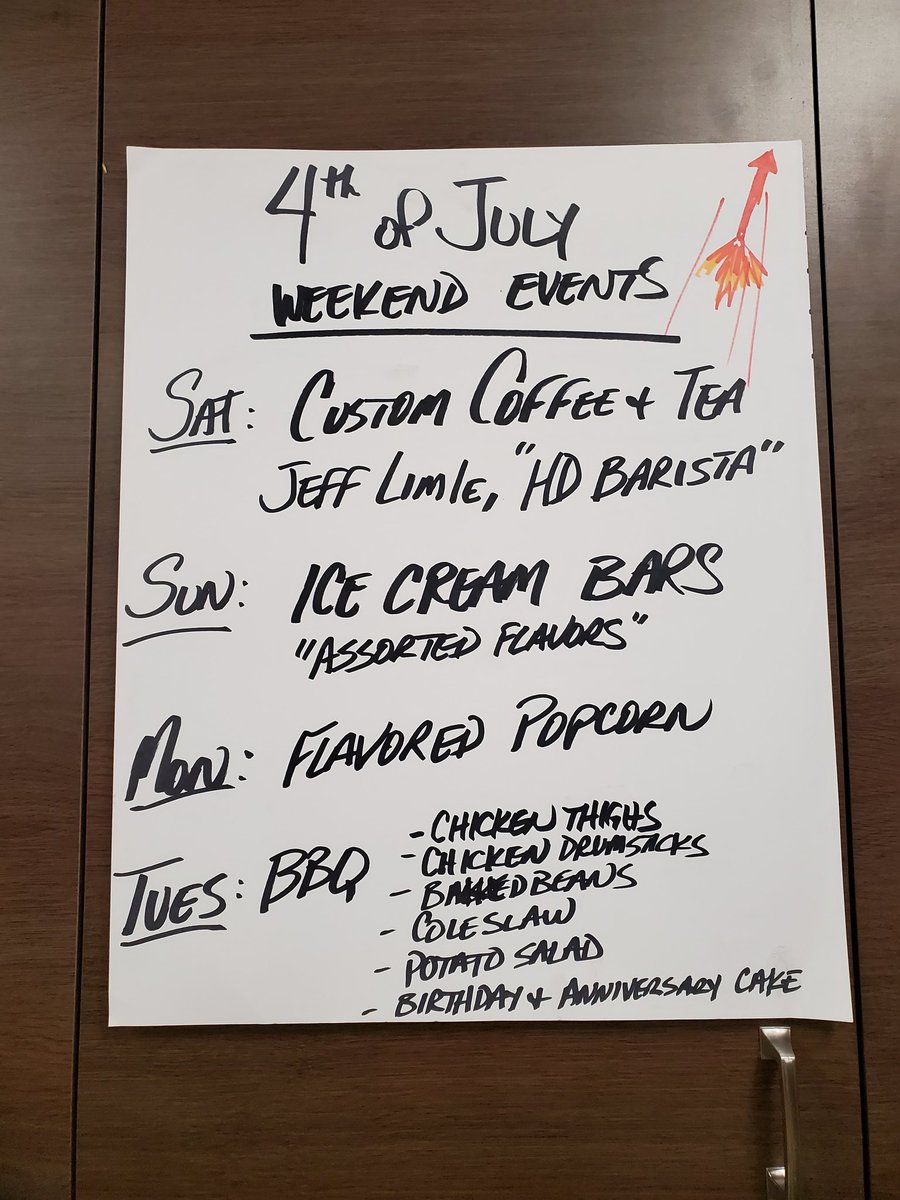 4th of July
WEEKEND EVENTS
SAT: CUSTOM COFFEE & TEA
JEFF LIMLE, "HD BARISTA"
SUN: ICE CREAM BARS
"ASSORTED FLAVORS"
MON: FLAVORED POPCORN
TUES: BBQ
- CHICKEN THIGHS
- CHICKEN DRUMSTICKS
- BAKED BEANS
- COLESLAW
- POTATO SALAD
- BIRTHDAY & ANNIVERSARY CAKE